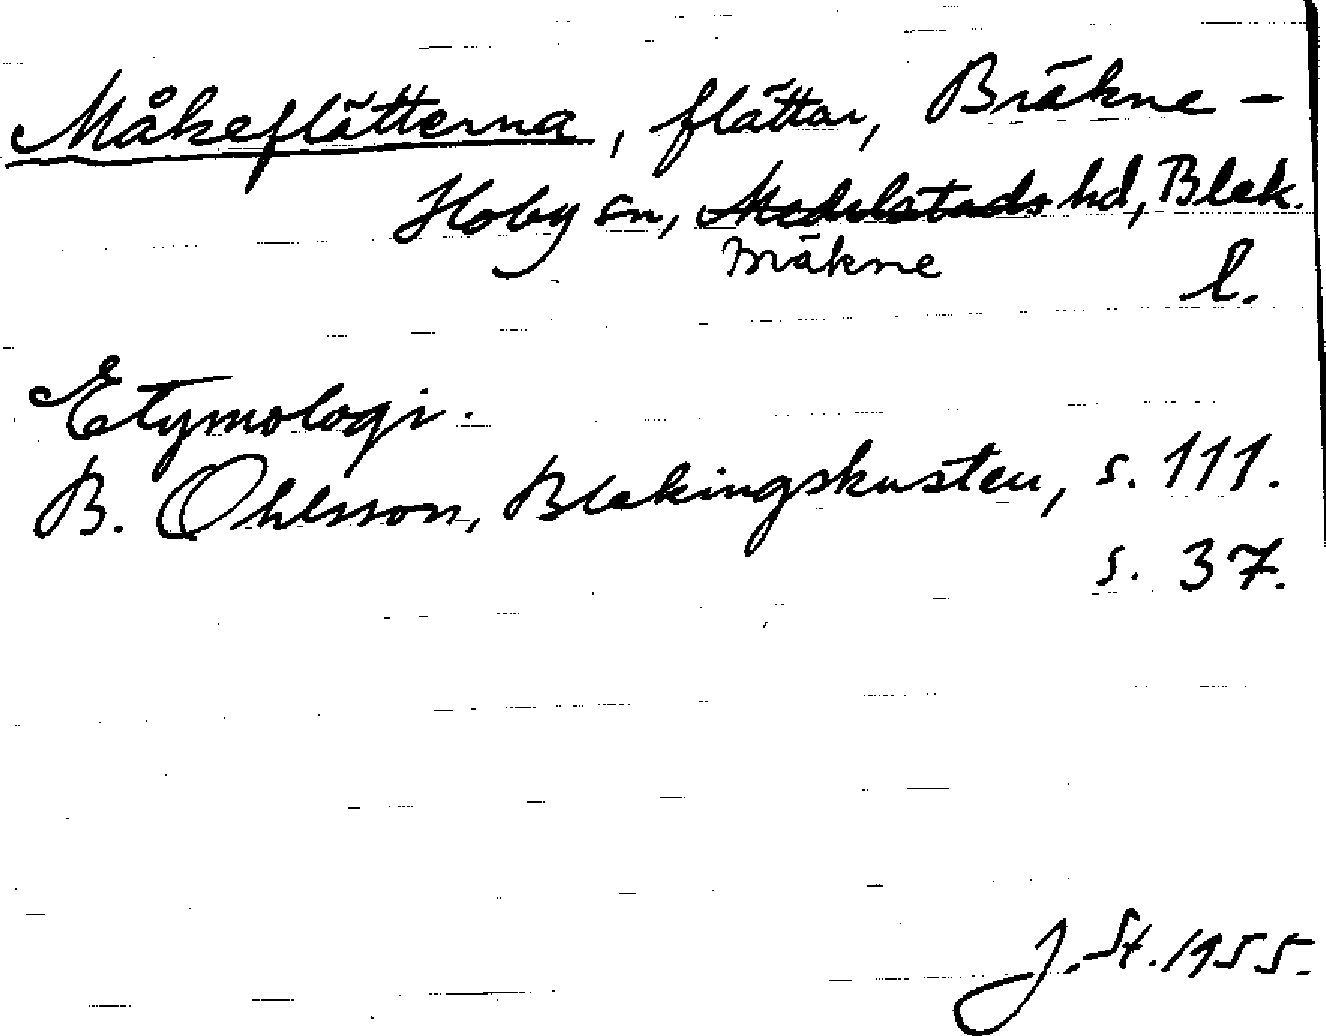 Måkeflätterna, flättar, Bräkne-
Hoby sn, Medelstads hd, Blek.
Bräkne
l.
Etymologi.
B. Ohlsson, Blekingskusten, s. 111.
s. 37.
J. St. 1955.